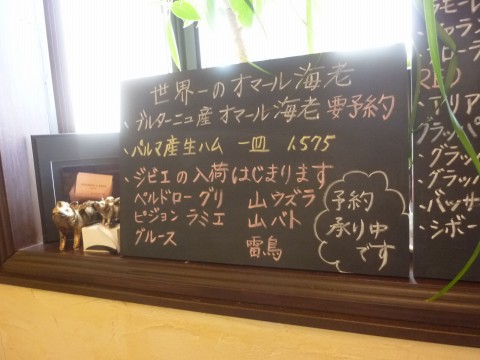 世界一のオマール海老
・ブルターニュ産オマール海老要予約
・パルマ産生ハム 一皿 1.575
・ジビエの入荷はじまります
ペルドローグリ 山ウズラ
ピジョン ラミエ 山バト
グルース 雷鳥
予約
承り中
です
RED
・アリア
グラッパ
・グラッ
・グラッ
・バッサ
・シボー